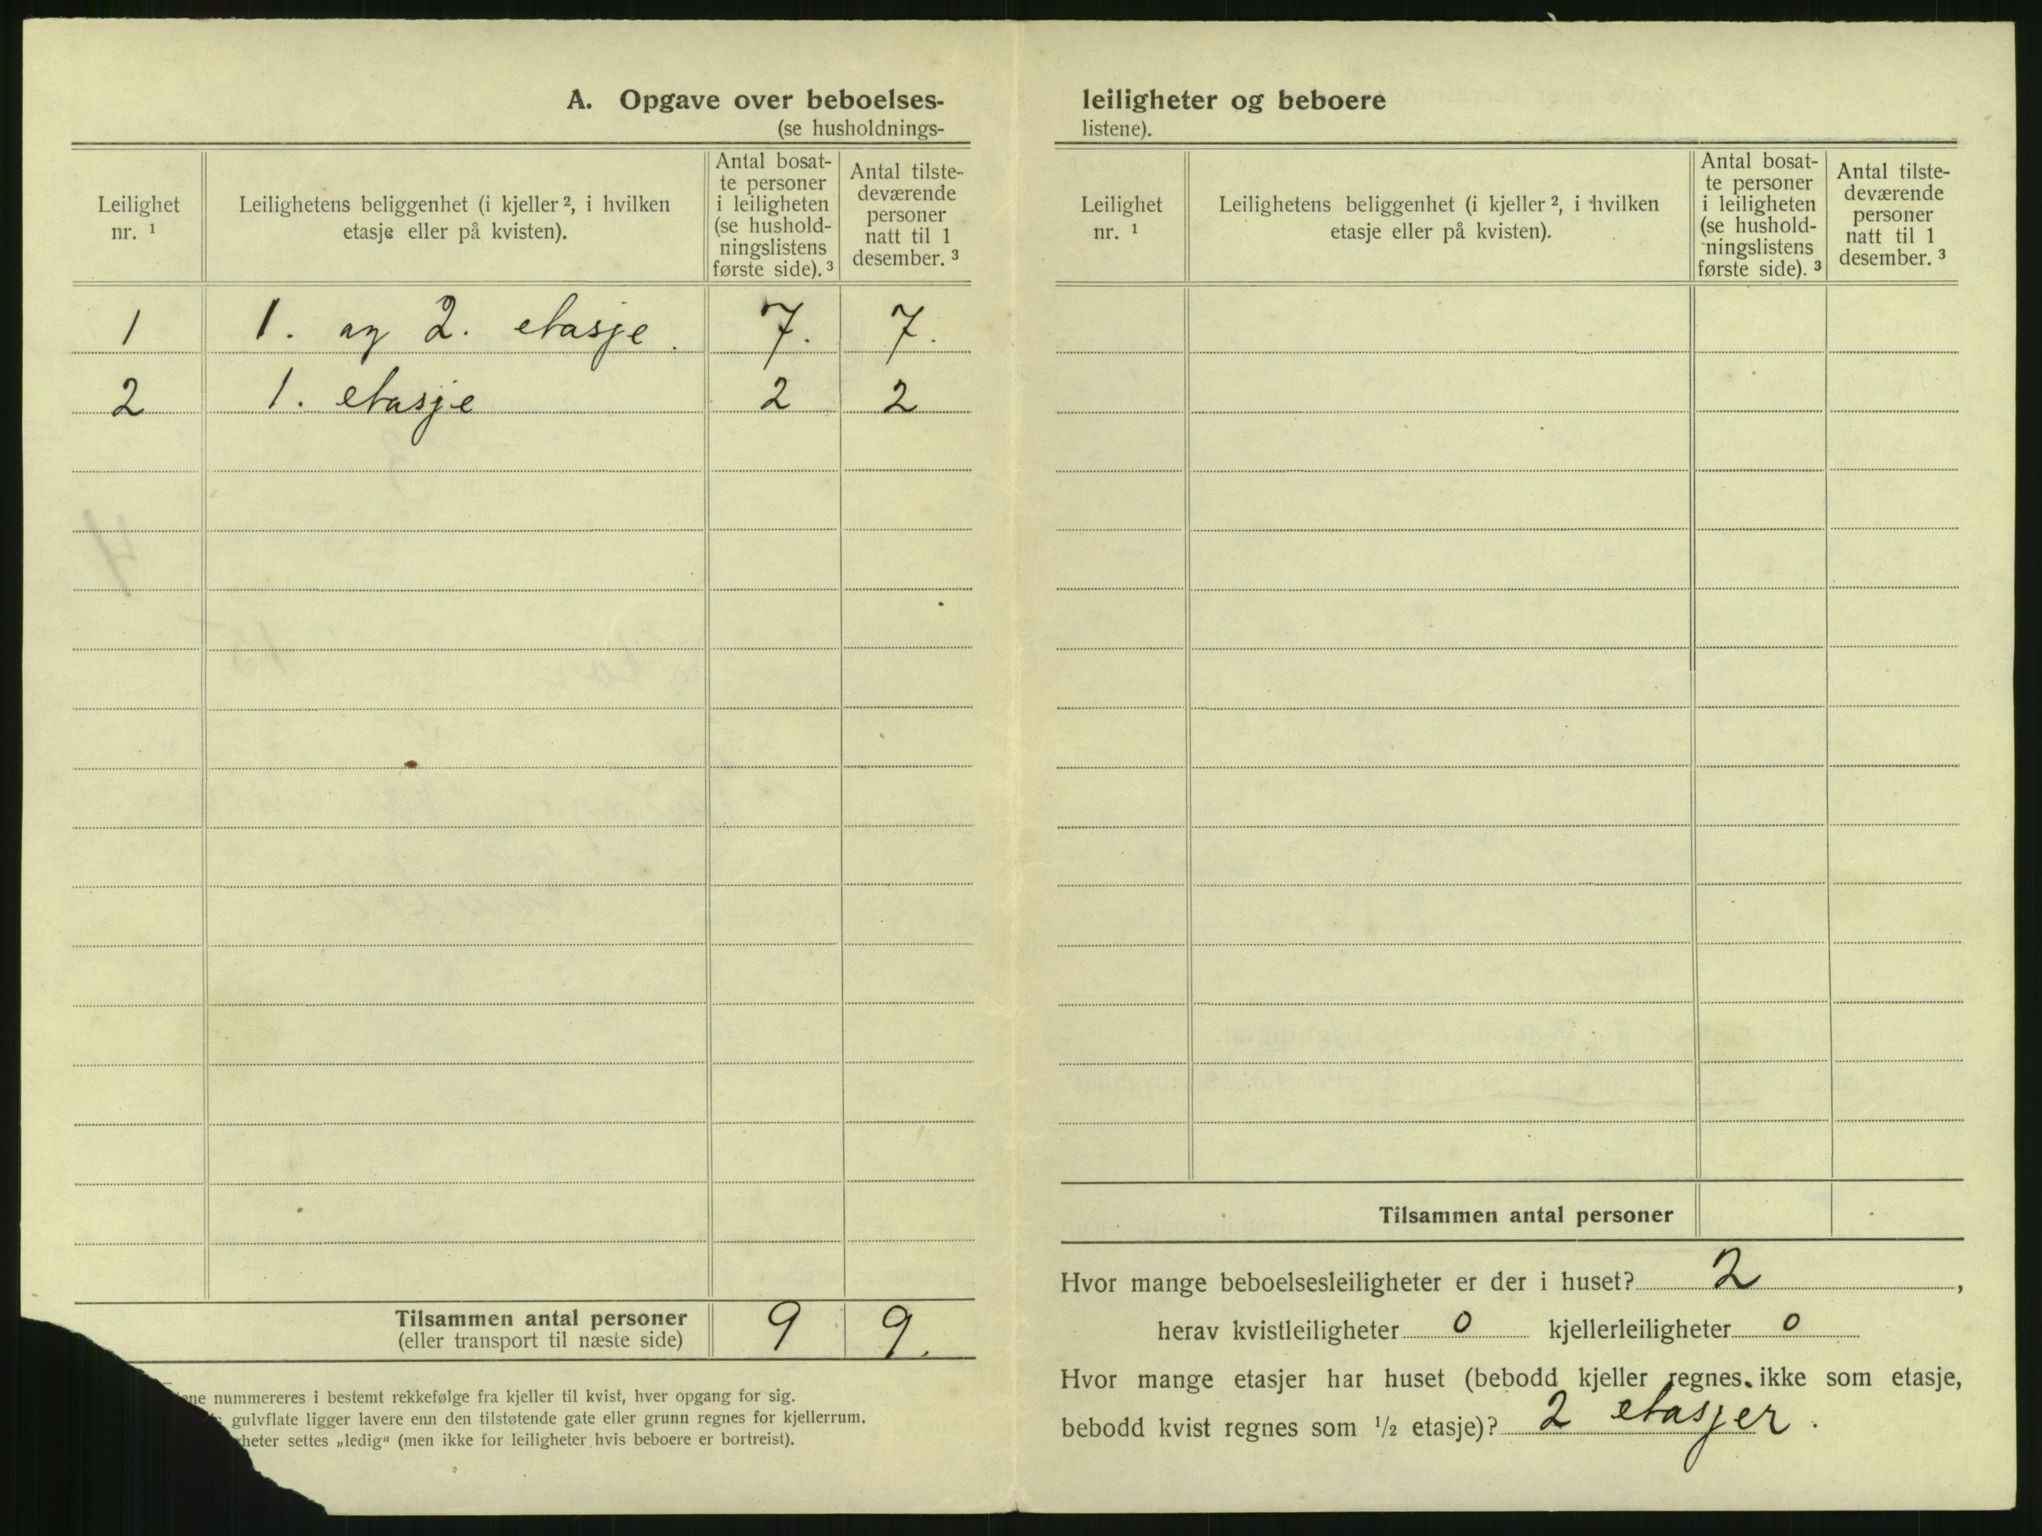 A. Opgave over beboelses-
(se husholdnings-
Leilighet nr. ¹
Leilighetens beliggenhet (i kjeller ², i hvilken
etasje eller på kvisten).
Antal bosat-
te personer
i leiligheten
(se hushold-
ningslistens
første side). ³
Antal tilste-
deværende
personer
natt til 1
desember. ³
1 1. og 2. etasje. 7. 7.
2 1. etasje 2 2
Tilsammen antal personer 9 9.
(eller transport til næste side)
nummereres i bestemt rekkefølge fra kjeller til kvist, hver opgang for sig.
gulvflate ligger lavere enn den tilstøtende gate eller grunn regnes for kjellerrum.
settes „ledig“ (men ikke for leiligheter hvis beboere er bortreist).
leiligheter og beboere
listene).
Leilighet nr. ¹
Leilighetens beliggenhet (i kjeller ², i hvilken
etasje eller på kvisten).
Antal bosat-
te personer
i leiligheten
(se hushold-
ningslistens
første side). ³
Antal tilste-
deværende
personer
natt til 1
desember. ³
Tilsammen antal personer
Hvor mange beboelsesleiligheter er der i huset? 2 ,
herav kvistleiligheter 0 kjellerleiligheter 0
Hvor mange etasjer har huset (bebodd kjeller regnes ikke som etasje,
bebodd kvist regnes som ½ etasje)? 2 etasjer.